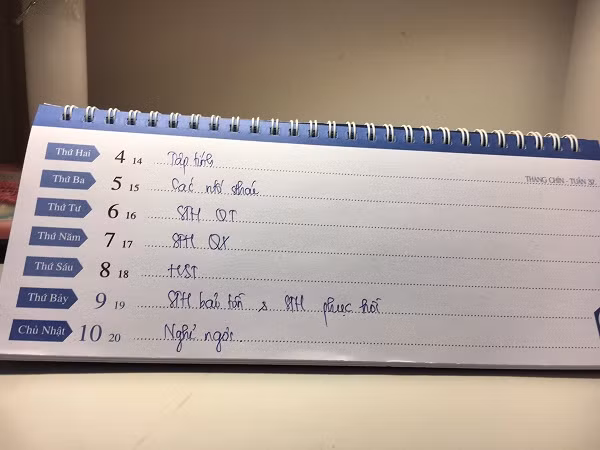 THÁNG CHÍN - TUẦN 37
Thứ Hai 4 14 Tập tính
Thứ Ba 5 15 Các
Thứ Tư 6 16 STH QT
Thứ Năm 7 17 STH QX
Thứ Sáu 8 18 HST
Thứ Bảy 9 19 STH bảo tồn & STH phục hồi
Chủ Nhật 10 20 Nghỉ ngơi.